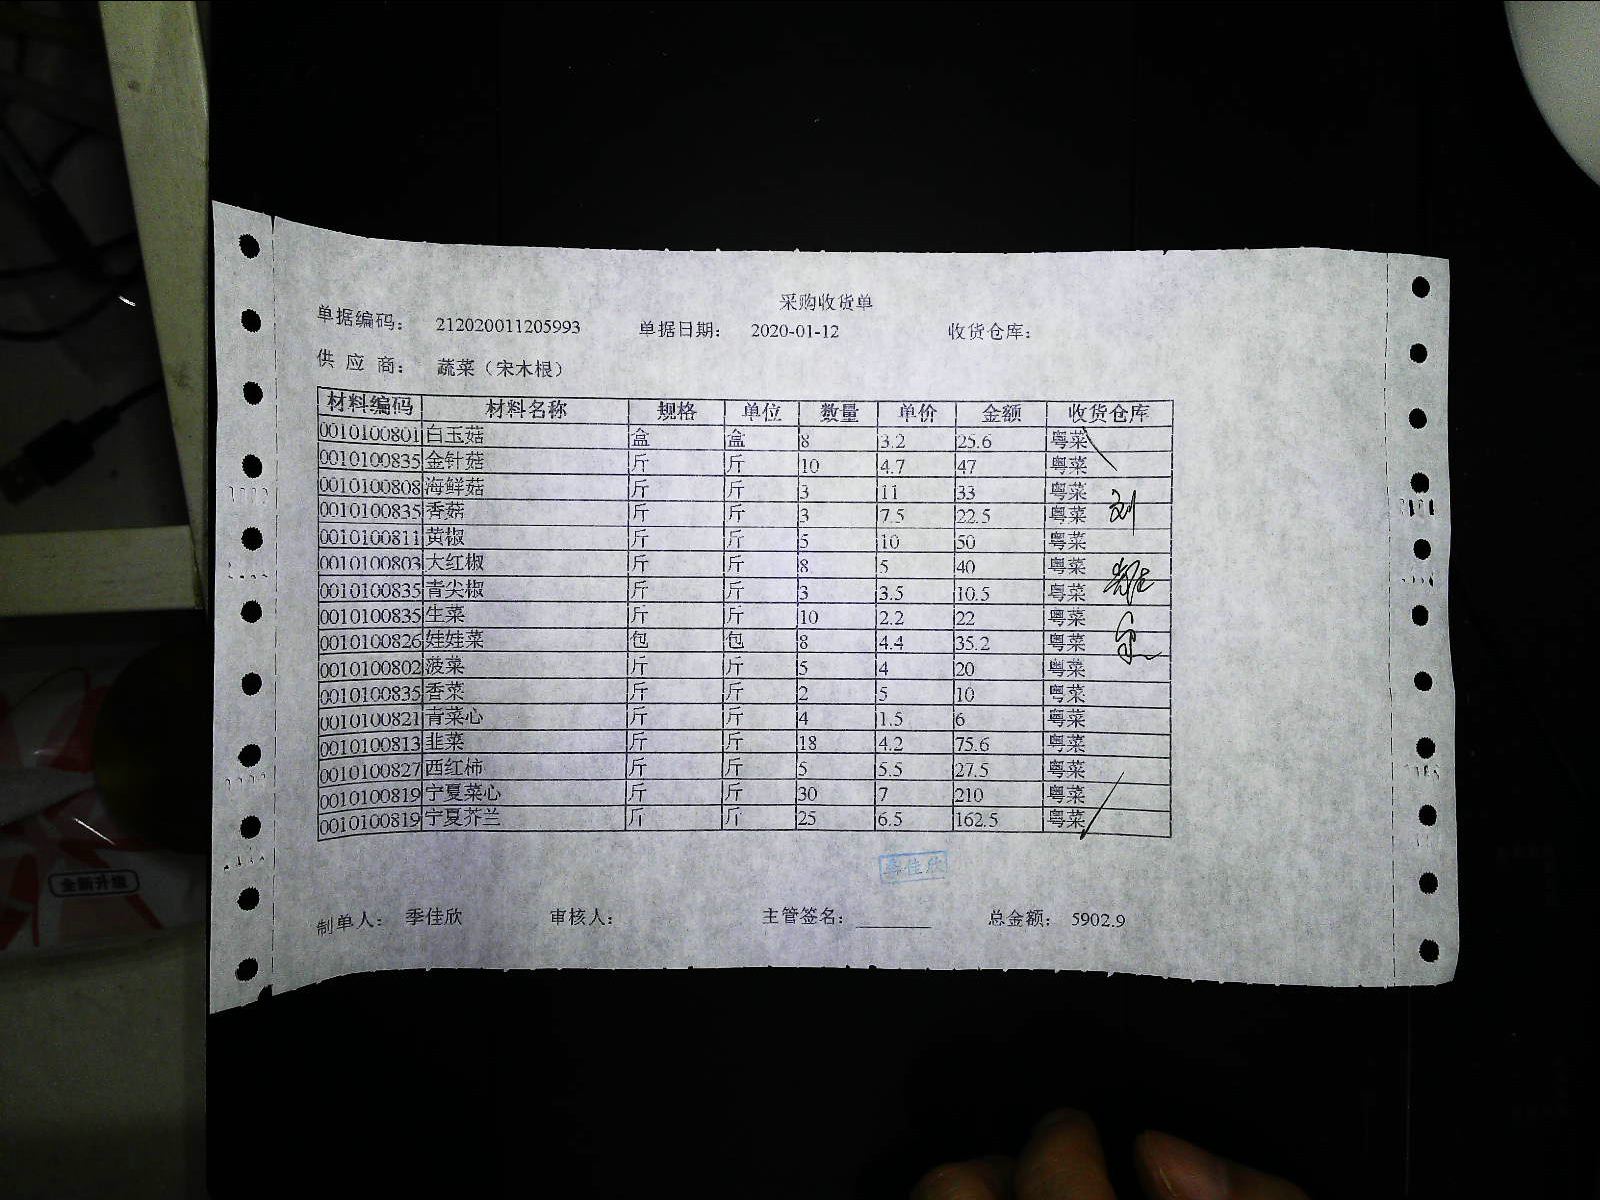 采购收货单
单据编码： 212020011205993 单据日期： 2020-01-12 收货仓库：
供 应 商： 蔬菜（宋木根）
材料编码 材料名称 规格 单位 数量 单价 金额 收货仓库
0010100801 白玉菇 盒 盒 8 3.2 25.6 粤菜
0010100835 金针菇 斤 斤 10 4.7 47 粤菜
0010100808 海鲜菇 斤 斤 3 11 33 粤菜
0010100835 香菇 斤 斤 3 7.5 22.5 粤菜
0010100811 黄椒 斤 斤 5 10 50 粤菜
0010100803 大红椒 斤 斤 8 5 40 粤菜
0010100835 青尖椒 斤 斤 3 3.5 10.5 粤菜
0010100835 生菜 斤 斤 10 2.2 22 粤菜
0010100826 娃娃菜 包 包 8 4.4 35.2 粤菜
0010100802 菠菜 斤 斤 5 4 20 粤菜
0010100835 香菜 斤 斤 2 5 10 粤菜
0010100821 青菜心 斤 斤 4 1.5 6 粤菜
0010100813 韭菜 斤 斤 18 4.2 75.6 粤菜
0010100827 西红柿 斤 斤 5 5.5 27.5 粤菜
0010100819 宁夏菜心 斤 斤 30 7 210 粤菜
0010100819 宁夏芥兰 斤 斤 25 6.5 162.5 粤菜
季佳欣
制单人： 季佳欣 审核人： 主管签名： 总金额： 5902.9
全新升级